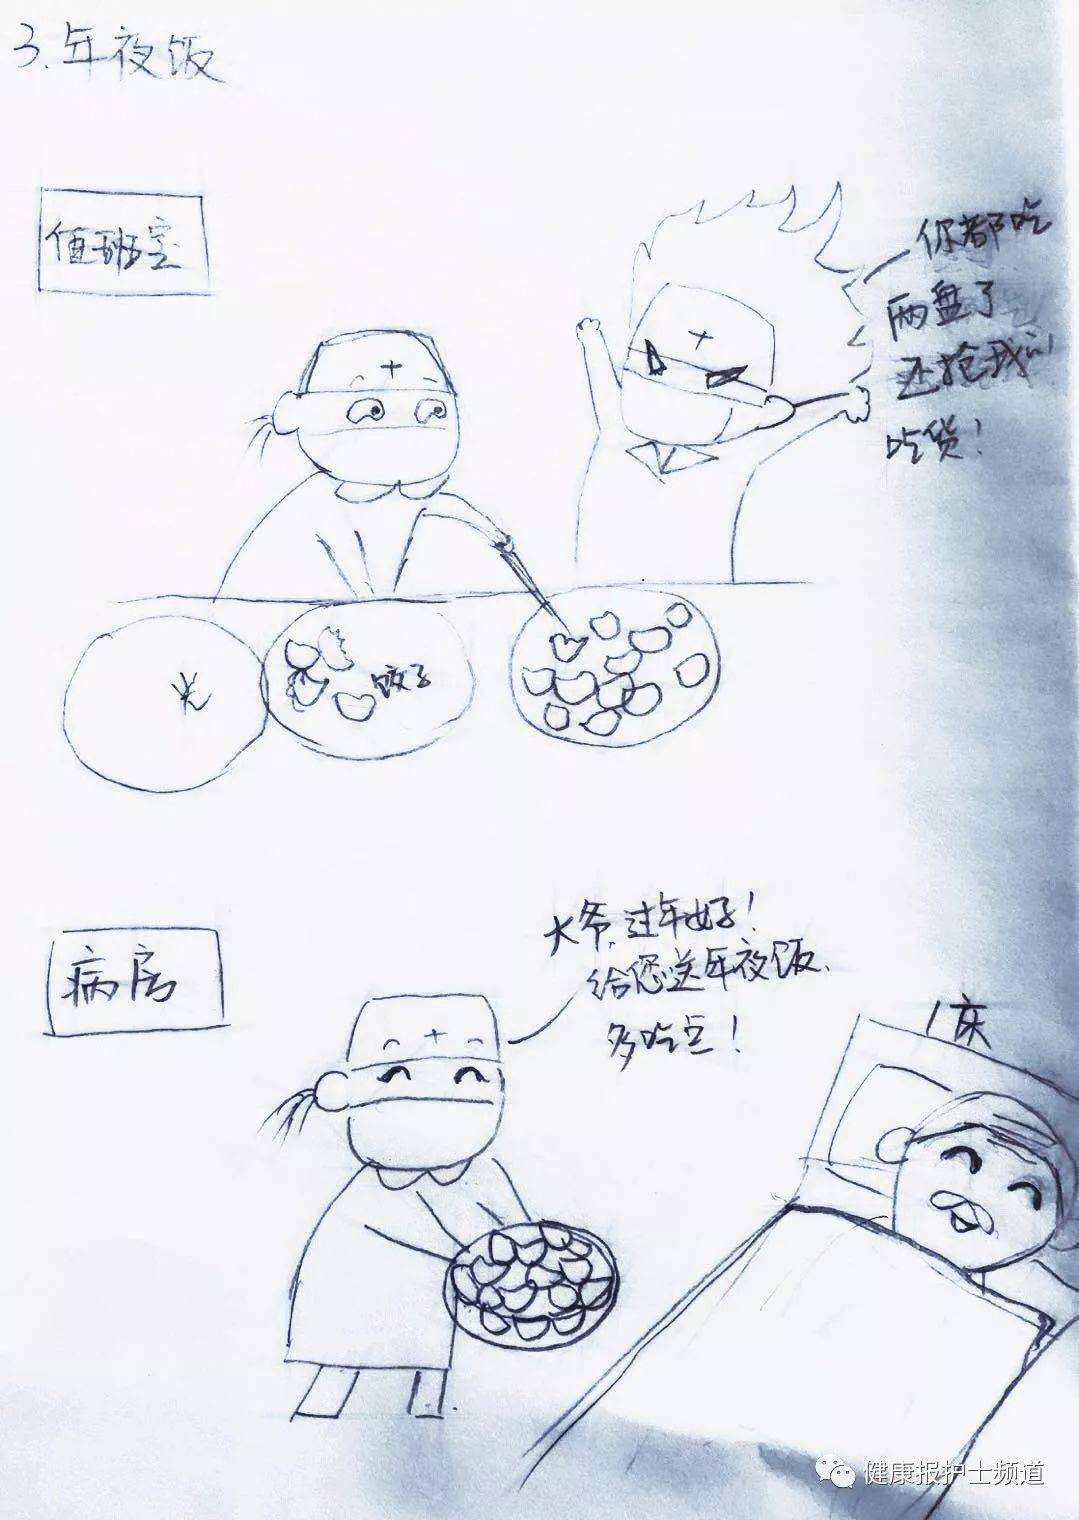 3.年夜饭
值班室
你都吃
两盘了
还抢我的
吃货!
光
饺子
病房
大爷,过年好!
给您送年夜饭,
多吃豆!
1床
健康报护士频道